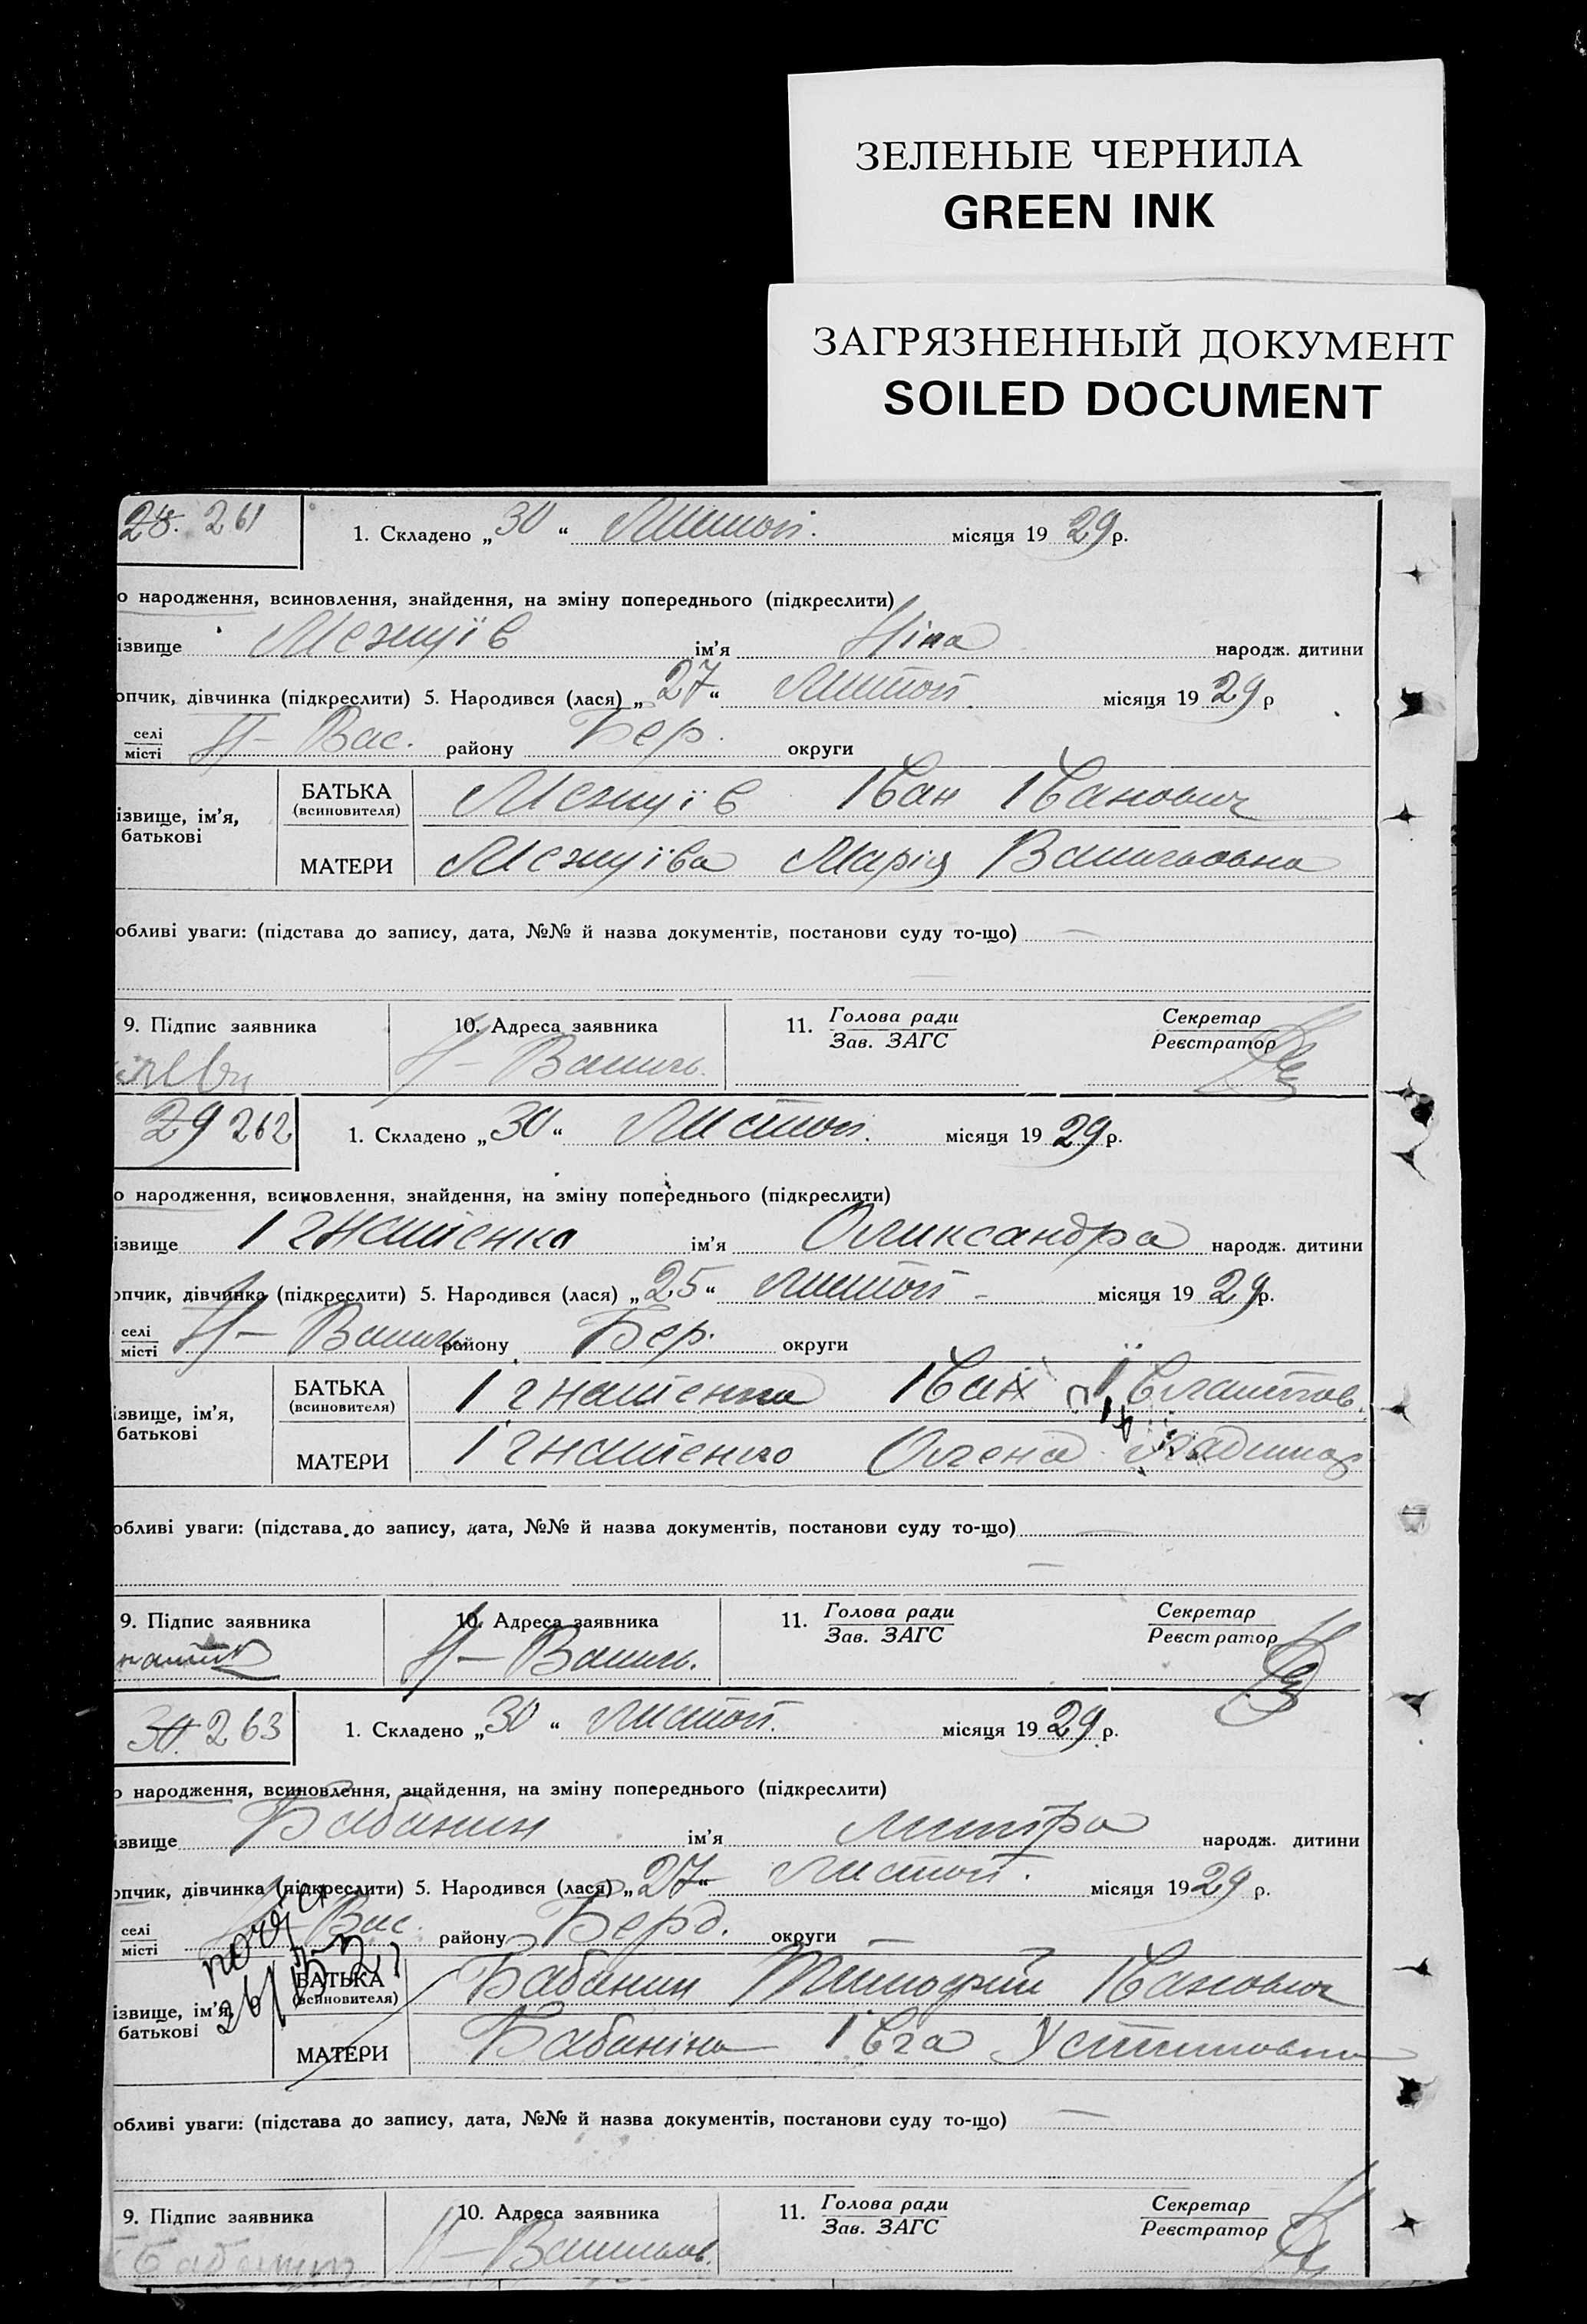 ЗЕЛЕНЫЕ ЧЕРНИЛА
GREEN INK
ЗАГРЯЗНЕННЫЙ ДОКУМЕНТ
SOILED DOCUMENT
28. 261 1. Складено „30“ Листоп. місяця 1929р.
о народження, всиновлення, знайдення, на зміну попереднього (підкреслити)
ізвище Межуїв ім’я Ніна народж. дитини
опчик, дівчинка (підкреслити) 5. Народився (лася) „27“ Листоп. місяця 1929 р
селі
місті Н- Вас. району Бер. округи
ізвище, ім’я, батькові
БАТЬКА (всиновителя) Межуїв Іван Іванович
МАТЕРИ Межуїва Марія Васильовна
обливі уваги: (підстава до запису, дата, №№ й назва документів, постанови суду то-що)
9. Підпис заявника 10. Адреса заявника 11. Голова ради Секретар
Зав. ЗАГС Реєстратор
Н- Василь.
29 262 1. Складено „30“ Листоп. місяця 1929р.
о народження, всиновлення, знайдення, на зміну попереднього (підкреслити)
ізвище Ігнатенко ім’я Олександра народж. дитини
опчик, дівчинка (підкреслити) 5. Народився (лася) „25“ Листоп - місяця 1929р.
селі
місті Н- Василь. району Бер. округи
ізвище, ім’я, батькові
БАТЬКА (всиновителя) Ігнатенко Іван
МАТЕРИ Ігнатенко Олена
обливі уваги: (підстава до запису, дата, №№ й назва документів, постанови суду то-що)
9. Підпис заявника 10. Адреса заявника 11. Голова ради Секретар
Зав. ЗАГС Реєстратор
Н- Василь.
30. 263 1. Складено „30“ Листоп. місяця 1929 р.
о народження, всиновлення, знайдення, на зміну попереднього (підкреслити)
ізвище Бабанин ім’я народж. дитини
опчик, дівчинка (підкреслити) 5. Народився (лася) „27“ Листоп. місяця 1929 р.
селі
місті Н- Вас. району Берд. округи
ізвище, ім’я, батькові
БАТЬКА (всиновителя) Бабанин Тимофій Іванович
МАТЕРИ Бабаніна Івга Устиновна
обливі уваги: (підстава до запису, дата, №№ й назва документів, постанови суду то-що)
9. Підпис заявника 10. Адреса заявника 11. Голова ради Секретар
Зав. ЗАГС Реєстратор
Бабанин Н- Васильов.